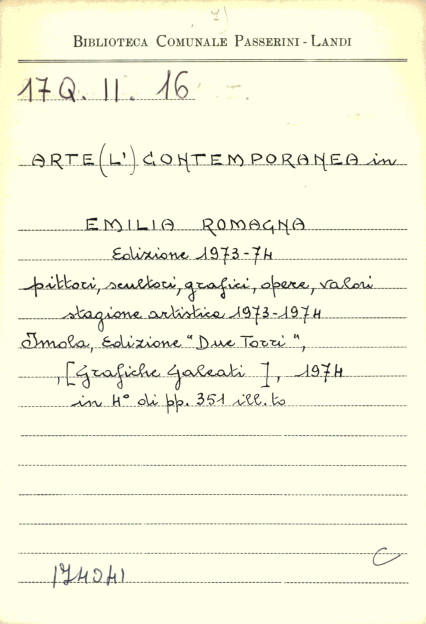 7)
BIBLIOTECA COMUNALE PASSERINI - LANDI
17 Q. II. 16
ARTE (L') CONTEMPORANEA in
EMILIA ROMAGNA
Edizione 1973-74
pittori, scultori, grafici, opere, valori
stagione artistica 1973-1974
Imola, Edizione "Due Torri",
, [Grafiche Galeati ], 1974
in 4° di pp. 351 ill.to
C
174041